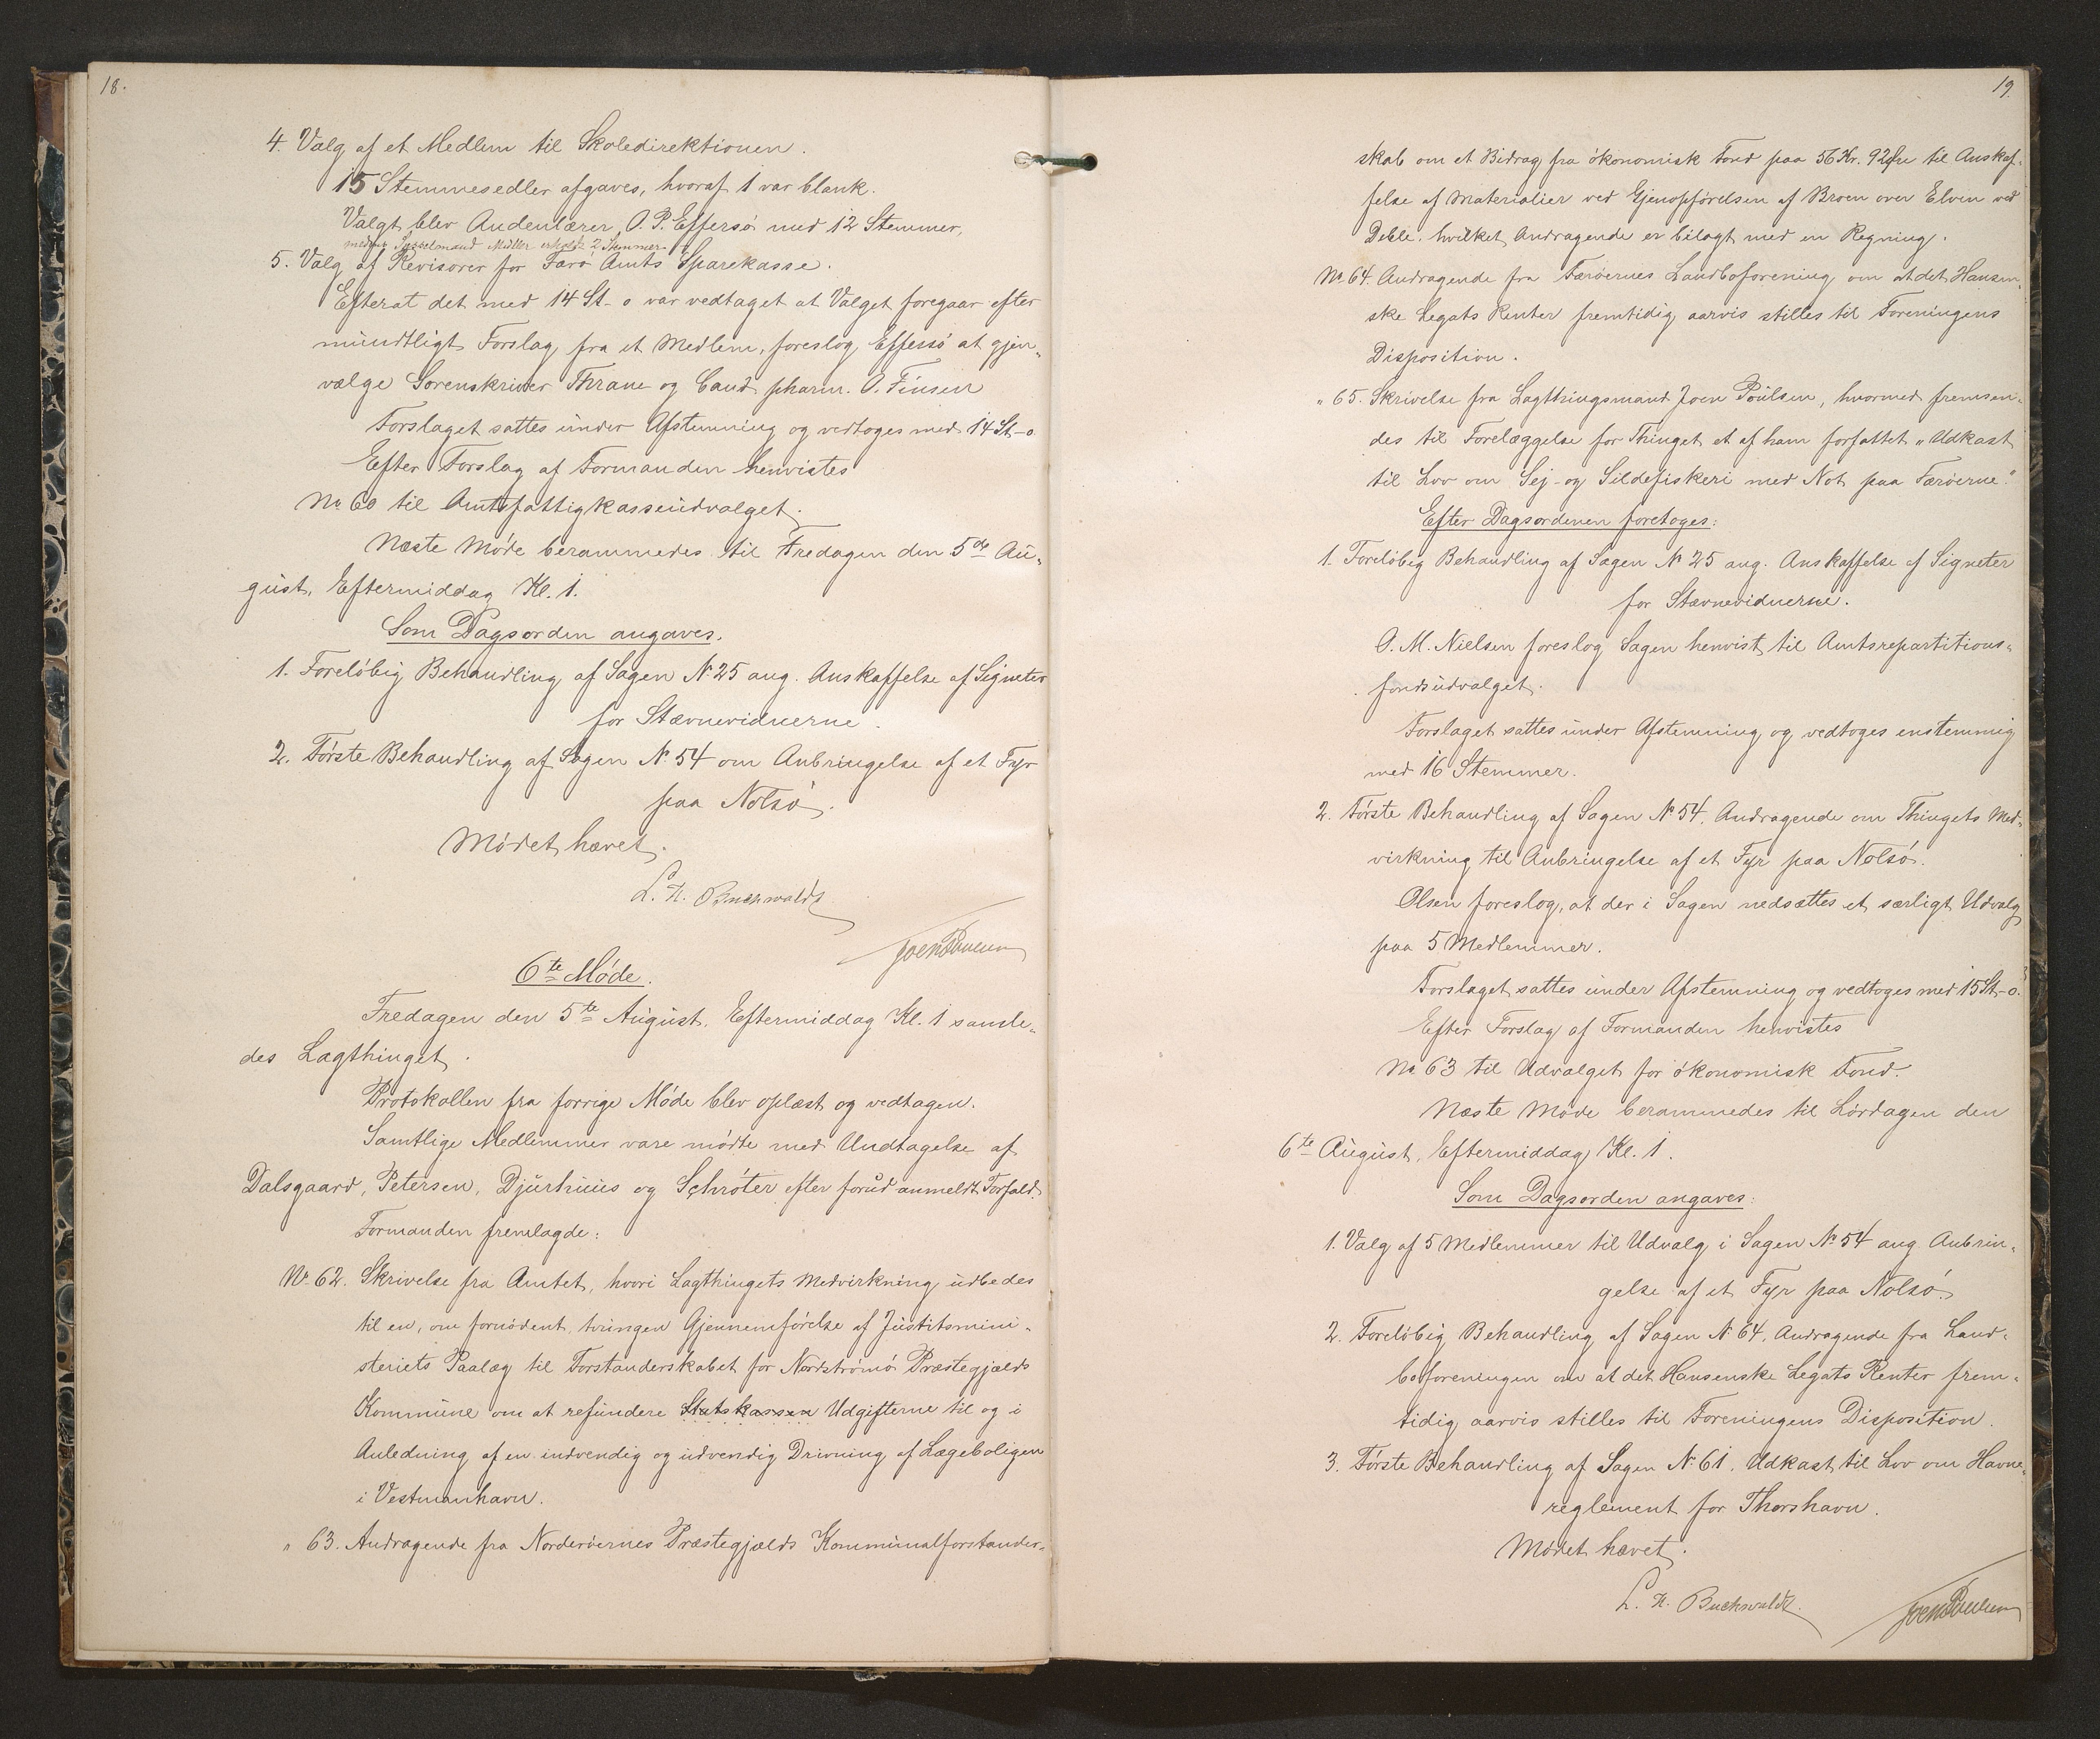 18.
4. Valg af et Medlem til Skoledirektionen.
15 Stemmesedler afgaves, hvoraf 1 var blank.
Valgt blev Andenlærer O. P. Effersö med 12 Stemmer,
medens Sysselmand Müller erholdt 2 Stemmer.
5. Valg af Revisorer for Færö Amts Sparekasse.
Efterat det med 14 St-0 var vedtaget at Valget foregaar efter
mundtligt Forslag fra et Medlem, foreslog Effersö at gjen-
vælge Sorenskriver Thrane og Cand. pharm. O. Finsen
Forslaget sattes under Afstemning og vedtoges med 14 St-0.
Efter Forslag af Formanden henvistes
No 60 til Amtsfattigkasseudvalget.
Næste Möde berammedes til Fredagen den 5de Au-
gust, Eftermiddag Kl. 1.
Som Dagsorden angaves.
1. Forelöbig Behandling af Sagen No 25 ang. Anskaffelse af Signeter
for Stævnevidnerne.
2. Förste Behandling af Sagen No 54 om Anbringelse af et Fyr
paa Nolsö.
Mödet hævet.
L. H. Buchwaldt
Joen Poulsen
6te Möde.
Fredagen den 5te August, Eftermiddag Kl. 1 samle-
des Lagthinget.
Protokollen fra forrige Möde blev oplæst og vedtagen.
Samtlige Medlemmer vare mödte med Undtagelse af
Dalsgaard, Petersen, Djurhuus og Schröter efter forud anmeldt Forfald.
Formanden fremlagde:
No 62. Skrivelse fra Amtet, hvori Lagthingets Medvirkning udbedes
til en, om fornödent, tvungen Gjennemförelse af Justitsmini-
steriets Paalæg til Forstanderskabet for Nordströmö Præstegjælds
Kommune om at refundere Statskassen Udgifterne til og i
Anledning af en indvendig og udvendig Drivning af Lægeboligen
i Vestmanhavn.
" 63. Andragende fra Norderöernes Præstegjælds Kommunalforstander-
19.
skab om et Bidrag fra ökonomisk Fond paa 56 Kr. 92 Öre til Anskaf-
felse af Materialier ved Gjenopförelsen af Broen over Elven ved
Deble, hvilket Andragende er bilagt med en Regning.
No 64. Andragende fra Færöernes Landboforening om at det Hansen-
ske Legats Renter fremtidig aarvis stilles til Foreningens
Disposition.
" 65. Skrivelse fra Lagthingsmand Joen Poulsen, hvormed fremsen-
des til Forelæggelse for Thinget et af ham forfattet "Udkast
til Lov om Sej- og Sildefiskeri med Not paa Færöerne."
Efter Dagsordenen foretoges:
1. Forelöbig Behandling af Sagen No 25 ang. Anskaffelse af Signeter
for Stævnevidnerne.
O. M. Nielsen foreslog Sagen henvist til Amtsrepartitions-
fondsudvalget.
Forslaget sattes under Afstemning og vedtoges enstemmig
med 16 Stemmer.
2. Förste Behandling af Sagen No 54. Andragende om Thingets Med-
virkning til Anbringelse af et Fyr paa Nolsö.
Olsen foreslog, at der i Sagen nedsættes et særligt Udvalg
paa 5 Medlemmer.
Forslaget sattes under Afstemning og vedtoges med 15 St-0.
Efter Forslag af Formanden henvistes
No 63 til Udvalget for ökonomisk Fond.
Næste Möde berammedes til Lördagen den
6te August, Eftermiddag Kl. 1.
Som Dagsorden angaves:
1. Valg af 5 Medlemmer til Udvalg i Sagen No 54 ang. Anbrin-
gelse af et Fyr paa Nolsö.
2. Forelöbig Behandling af Sagen No 64, Andragende fra Land-
boforeningen om at det Hansenske Legats Renter frem-
tidig aarvis stilles til Foreningens Disposition.
3. Förste Behandling af Sagen No 61. Udkast til Lov om Havne-
reglement for Thorshavn.
Mödet hævet.
L. H. Buchwaldt.
Joen Poulsen